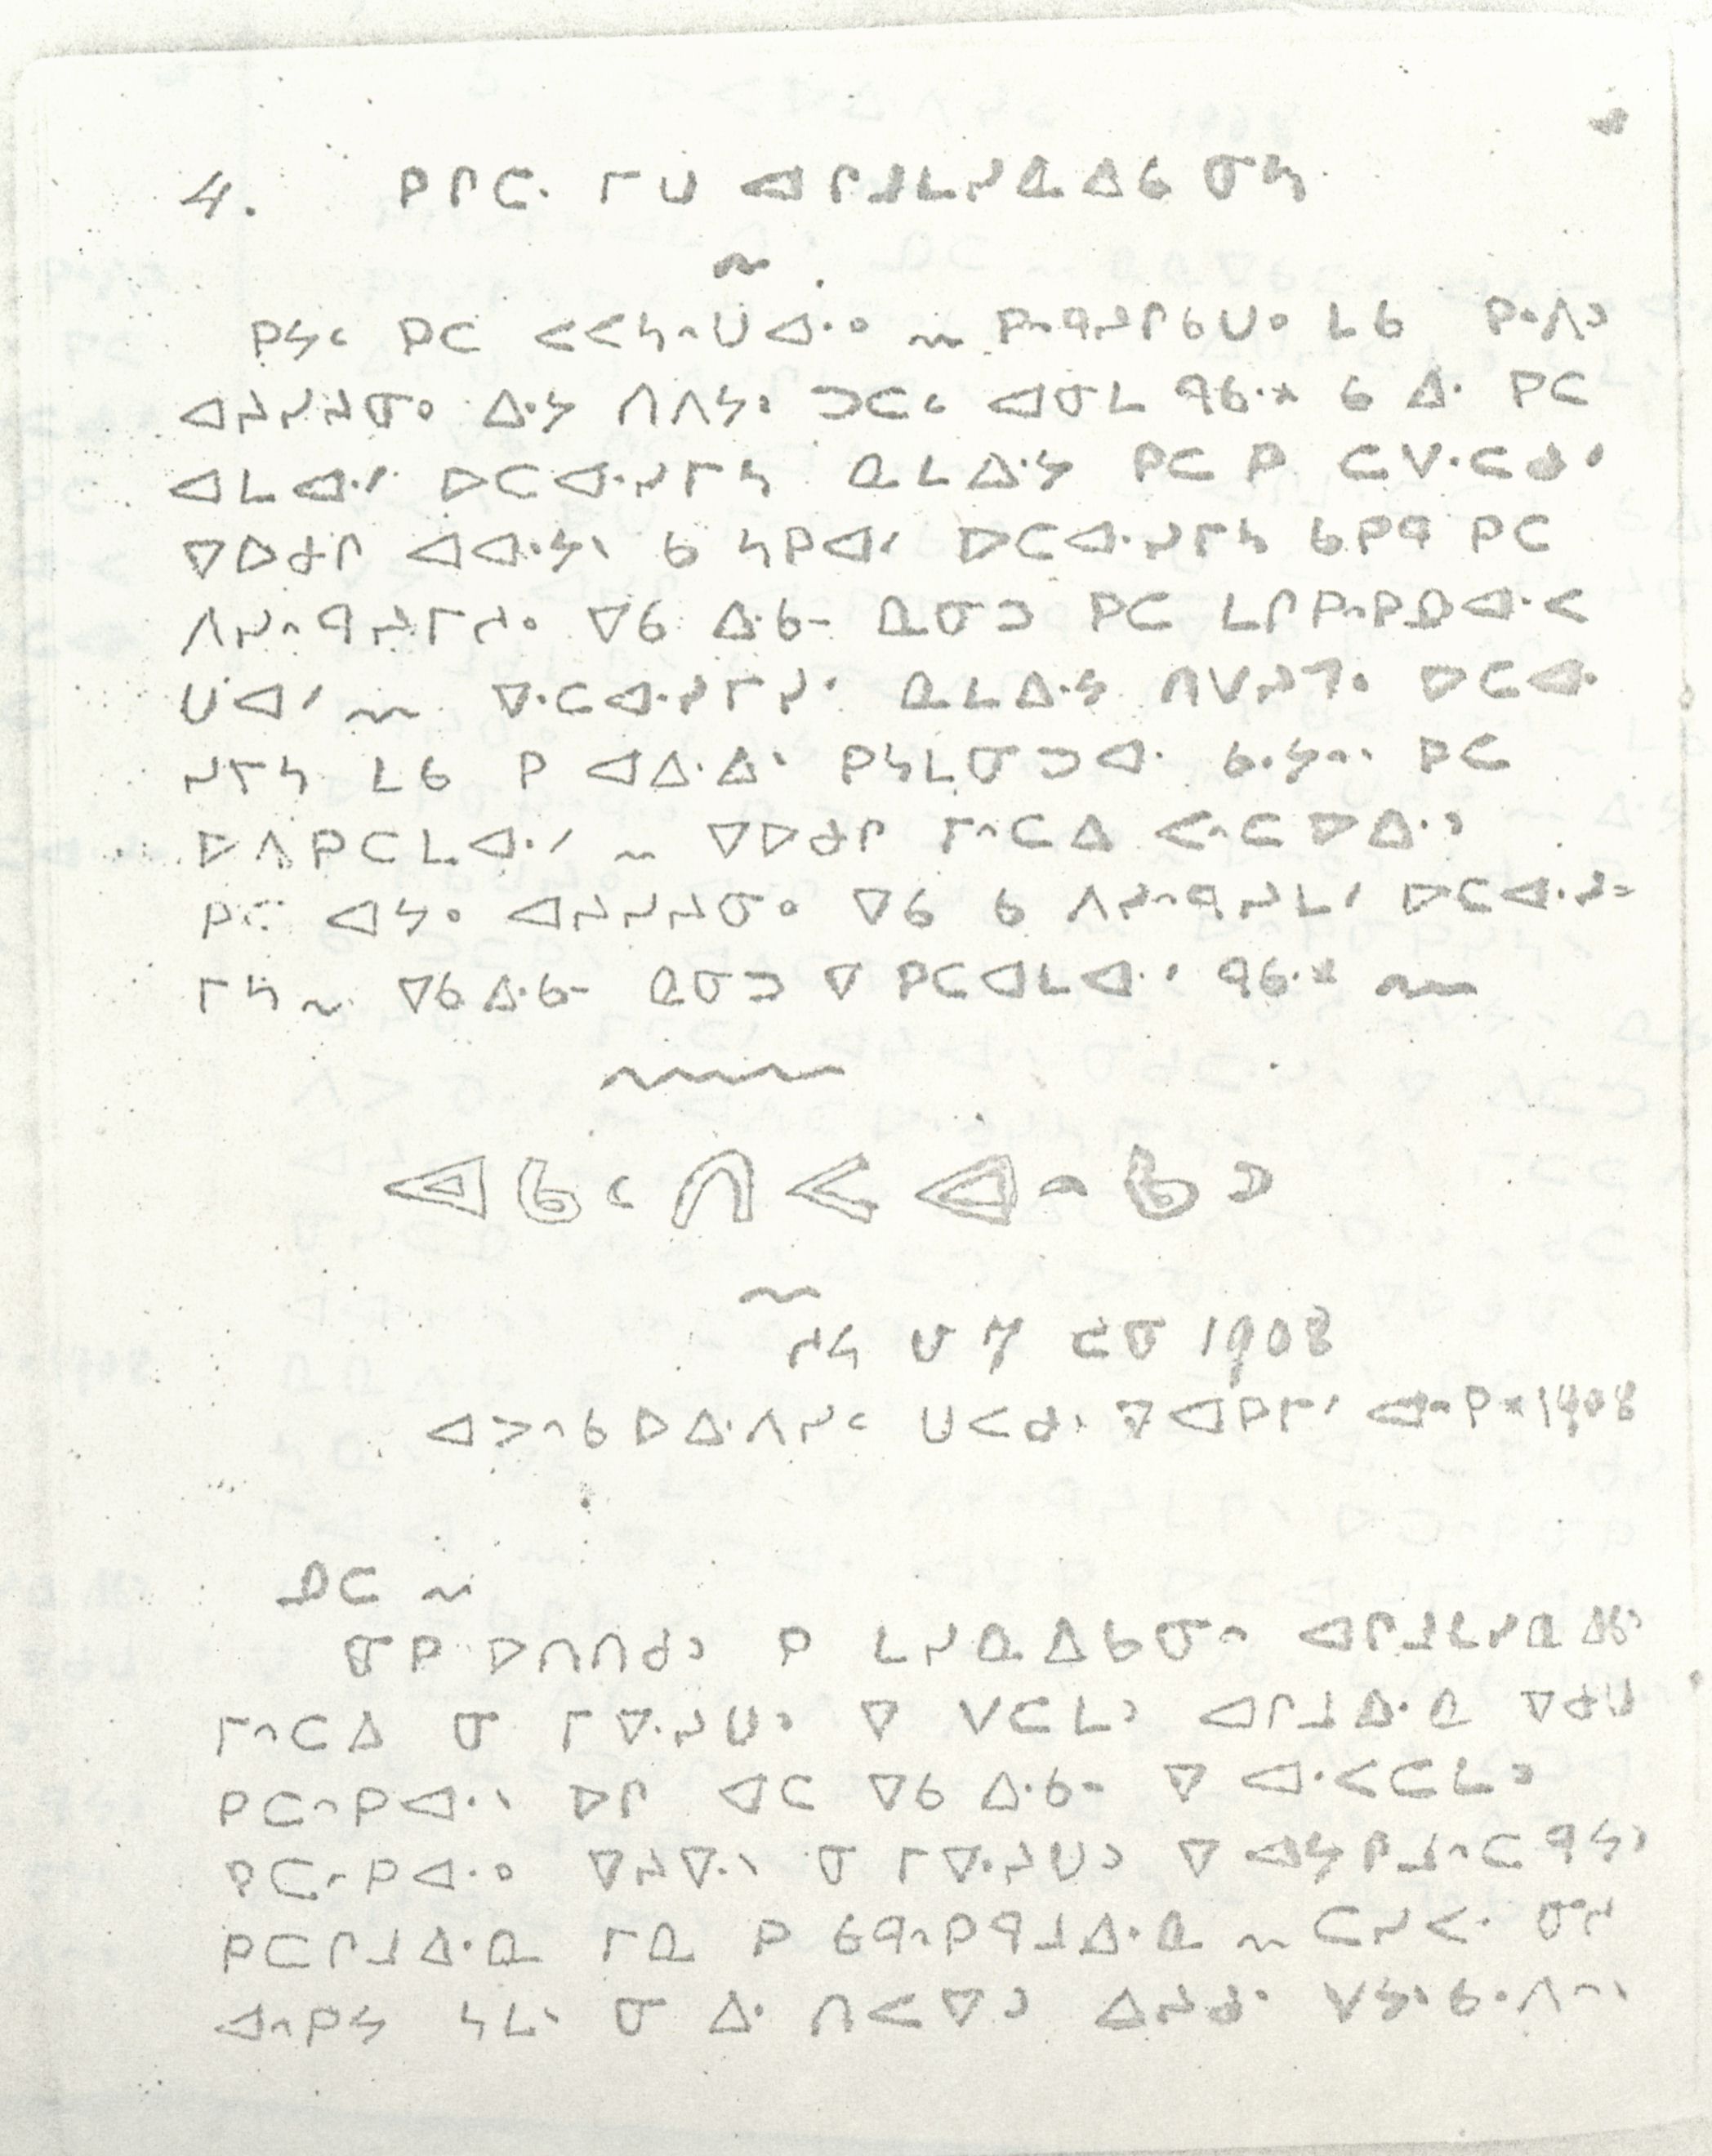 4. ᑭᒋᑕᐧ ᒥᑌ ᐊᒋᒧᒪᓯᓇᐃᑲ ᓂᓴ
ᑭᔭᐨ ᑭᑕ ᐸᐸᓴᐢᑌᐊᐧᐤ ~ ᑭᐢᑫᓯᒋᑲᑌᐤ ᒪᑲ ᑭᐢᐱᐣ
ᐊᓱᓯᓱᓂᐤ ᐃᐧᔭ ᑎᐱᔭᐤ ᑐᑕᐨ ᐊᓂᒪ ᑫᑲᐧᕽ ᑲ ᐃᐧ ᑭᑕ
ᐊᒪᐊᐧᐟ ᐅᑕᐊᐧᓯᒥᓴ ᓇᒪᐃᐧᔭ ᑭᑕ ᑭ ᑕᐯᐧᑕᑯᐟ
ᐁᐅᑯᒋ ᐊᐊᐧᔭᐠ ᑲ ᓴᑭᐊᐟ ᐅᑕᐊᐧᓯᒥᓴ ᑲᑭᑫ ᑭᑕ
ᐱᓯᐢᑫᓱᒥᓱᐤ ᐁᑲ ᐃᐧᑲᐨ ᓇᓂᑐ ᑭᑕ ᒪᒋᑭᐢᑭᓄᐊᐧᐸ
ᑌᐊᐟ ~ ᐁᐧᑕᐊᐧᓯᒥᓯᐟ ᓇᒪᐃᐧᔭ ᑎᐯᓱᒣᐤ ᐅᑕᐊᐧ
ᓯᒥᓴ ᒪᑲ ᑭ ᐊᐃᐧᐃᐠ ᑭᓴᒪᓂᑐᐊᐧ ᑲᐧᔭᐢᐠ ᑭᑕ
ᐅᐱᑭᑕᒪᐊᐧᐟ ~ ᐁᐅᑯᒋ ᒥᐢᑕᐃ ᐸᐢᑕᐅᐃᐧᐣ
ᑭᑕ ᐊᔭᐤ ᐊᓱᓯᓱᓂᐤ ᐁᑲ ᑲ ᐱᓯᐢᑫᓯᒪᐟ ᐅᑕᐊᐧᓯ=
ᒥᓴ ~ ᐁᑲ ᐃᐧᑲᐨ ᓇᓂᑐ ᐁ ᑭᑕᐊᒪᐊᐧᐟ ᑫᑲᐧᕽ ~
ᐊᑲᐨᑎᐸᐊᐢᑲᐣ
ᓱᓴ ᑌ 7 ᑕᓂ 1908
ᐊᐳᐢᑲ ᐅᐃᐧᐱᓯᐨ ᑌᐸᑯᐠ 7 ᐊᑭᒥᐟ ᐊᐢᑭᕽ 1908
ᓄᑕ ~
ᓂᑭ ᐅᑎᑎᑯᐣ ᑭ ᒪᓯᓇᐃᑲᓂᐢ ᐊᒋᒧᒪᓯᓇᐃᑲᐣ
ᒥᐢᑕᐃ ᓂ ᒥᐁᐧᓱᑌᐣ ᐁ ᐯᑕᒪᐣ ᐊᒋᒧᐃᐧᓇ ᐁᑯᑌ
ᑭᑕᐢᑭᐊᐧᐠ ᐅᒋ ᐊᑕ ᐁᑲ ᐃᐧᑲᐨ ᐁ ᐊᐧᐸᑕᒪᐣ
ᑭᑕᐢᑭᐊᐧᐤ ᐁᓱᐁᐧᐠ ᓂ ᒥᐁᐧᓱᑌᐣ ᐁ ᐊᔭᒋᒧᐢᑕᑫᔭᐣ
ᑭᑕᒋᒧᐃᐧᓇ ᒥᓇ ᑭ ᑲᑫᐢᑭᑫᒧᐃᐧᓇ ~ ᑕᓯᐸᐧ ᓂᓱ
ᐊᐢᑭᔭ ᓴᒪᐠ ᓂ ᐃᐧ ᑎᐸᐁᐣ ᐃᓱᑯᐧ ᐯᔭᐠᑲᐧᐱᐢᐠ